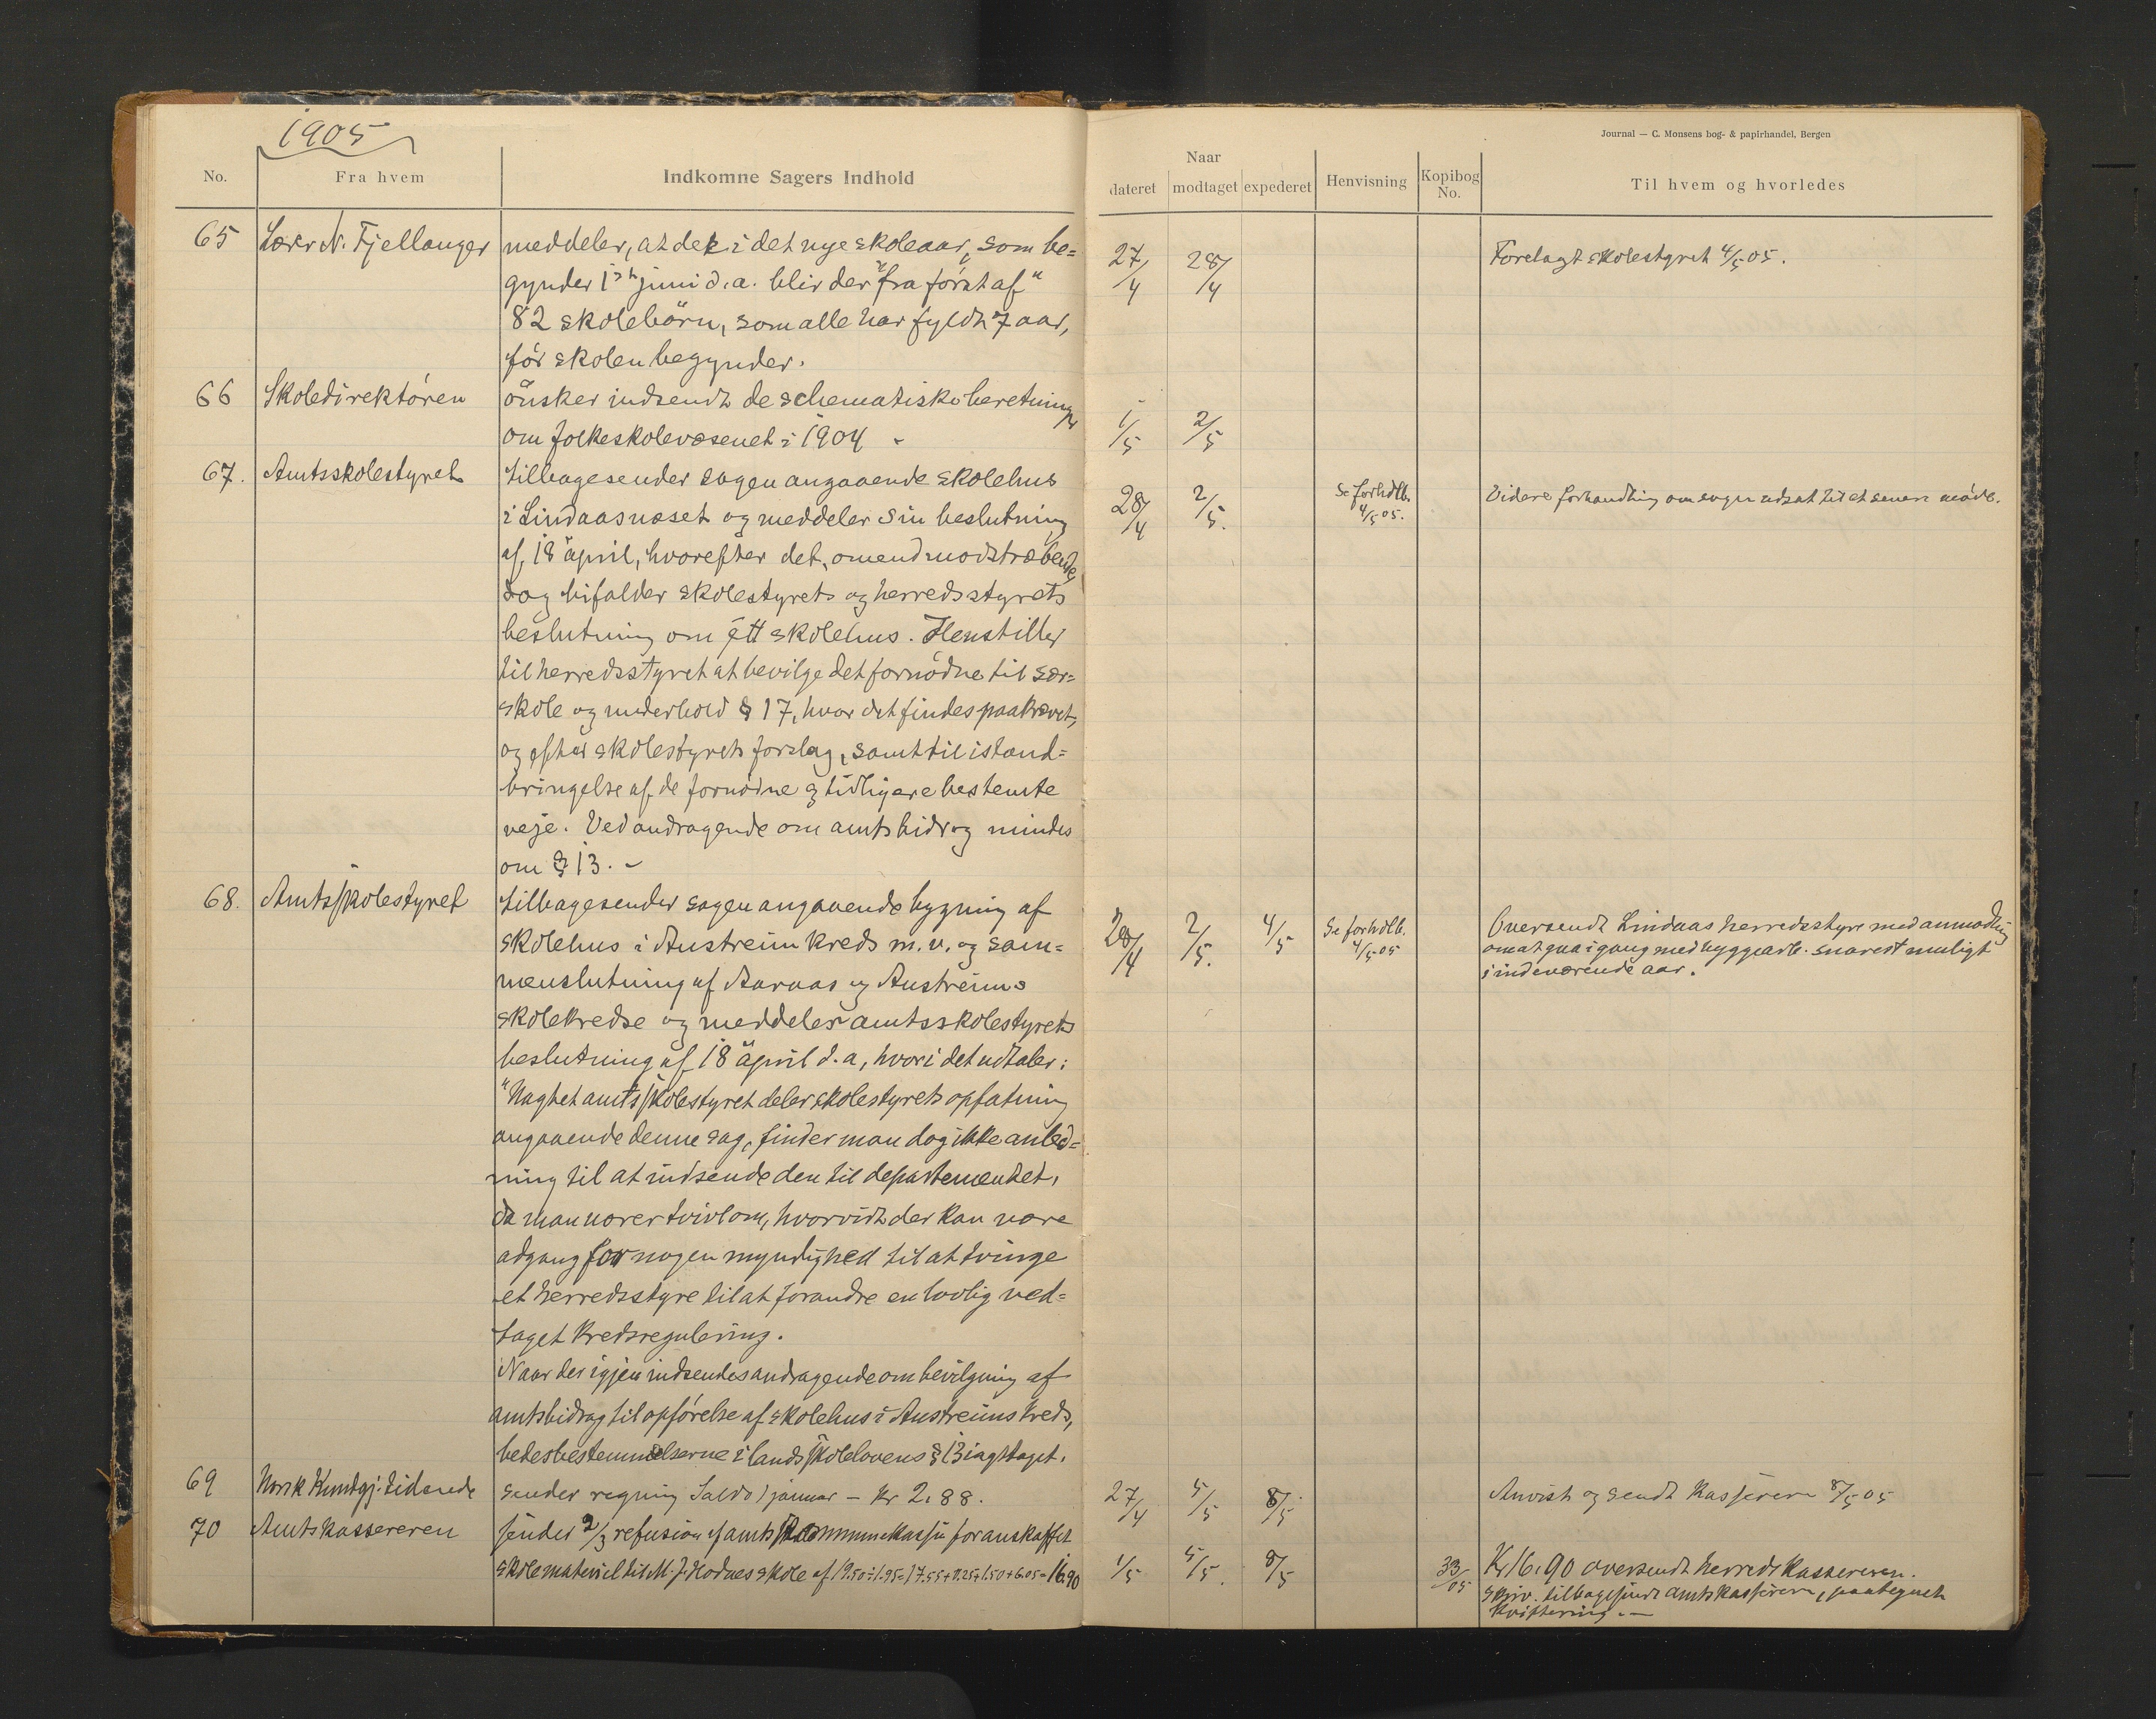 1905
No.
Fra hvem
Indkomne Sagers Indhold
65 Lærer N. Fjellanger meddeler, at der i det nye skoleaar, som be=
gynder 1st juni d. a. blir der "fra først af"
82 skolebörn, som alle har fyldt 7 aar,
før skolen begynder.
66 Skoledirektøren önsker indsendt de schematiske beretninger
om folkeskolevæsenet i 1904 -
67. Amtsskolestyret tilbagesender sagen angaaende skolehus
i Lindaasnæset og meddeler sin beslutning
af 18 april, hvorefter det, omend modstræbende,
dog bifalder skolestyrets og herredsstyrets
beslutning om ett skolehus. Henstiller
til herredsstyret at bevilge det fornødne til sær=
skole og underhold § 17, hvor det findes paakrævet,
og efter skolestyrets forslag, samt til istand=
bringelse af de fornødne og tidligere bestemte
veje. Ved andragende om amtsbidrag mindes
om § 13. -
68. Amtsskolestyret tilbagesender sagen angaaende bygning af
skolehus i Austreim kreds m. v. og sam=
menslutning af Aaraas og Austreims
skolekredse og meddeler amtsskolestyrets
beslutning af 18 april d. a, hvori det udtaler:
"Uagtet amtsskolestyret deler skolestyrets opfatning
angaaende denne sag, finder man dog ikke anled=
ning til at indsende den til departementet,
da man nærer tvivl om, hvorvidt der kan være
adgang for nogen myndighed til at tvinge
et herredsstyre til at forandre en lovlig ved=
taget kredsregulering.
Naar der igjen indsendes andragende om bevilgning af
amtsbidrag til opførelse af skolehus i Austreims kreds,
bedes bestemmelserne i landsskolelovens § 13 iagttaget.
69 Norsk Kundgj. tidende sender regning Saldo 1 januar - Kr 2.88.
70 Amtskassereren sender 2/3 refusion af amtskommunekassen for anskaffet
skolemateriel til M. J. Hodnes skole af 19.50 ÷ 1.95 = 17.55 + 0.25 + 1.50 + 6.05 = 16.90
Journal — C. Monsens bog- & papirhandel, Bergen
Naar
dateret modtaget expederet Henvisning Kopibog No. Til hvem og hvorledes
27/4 28/4 Forelagt skolestyret 4/5 05.
1/5 2/5
28/4 2/5. Se forhdlb. 4/5 05. Videre forhandling om sagen udsat til et senere møde.
28/4 2/5. 4/5 Se forhdlb. 4/5 05 Oversendt Lindaas herredsstyre med anmodning
om at gaa igang med byggearb. snarest muligt
i indeværende aar.
27/4 5/5 8/5 Anvist og sendt kassereren 8/5 05
1/5 5/5. 8/5 33/05 Kr 16.90 oversendt herredskassereren.
Skriv. tilbagesendt amtskassereren, paategnet
kvittering. -